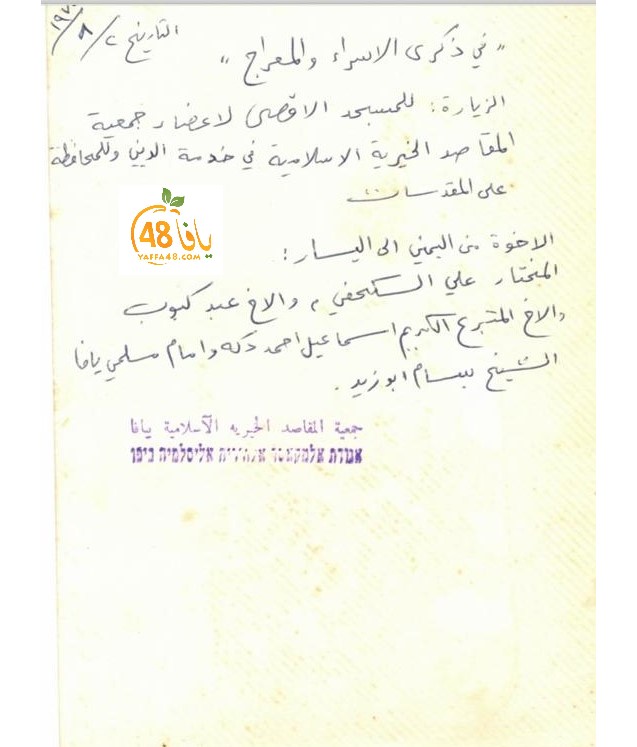 التاريخ ٢/٨/١٩٧
"في ذكرى الاسراء والمعراج"
الزيارة: للمسجد الاقصى لاعضاء جمعية
المقاصد الخيرية الاسلامية في خدمة الدين وللمحافظة
على المقدسات
يافا 48
YAFFA48.COM
الاخوة من اليمنى الى اليسار:
المختار علي السكحفي، والاخ عبد كبوب
والاخ المتبرع الكريم اسماعيل احمد دكه وامام مسلمي يافا
الشيخ بسام ابو زيد.
جمعية المقاصد الخيريه الآسلامية يافا
אגודת אלמקאסד אלח'ירית אליסלמיה ביפו